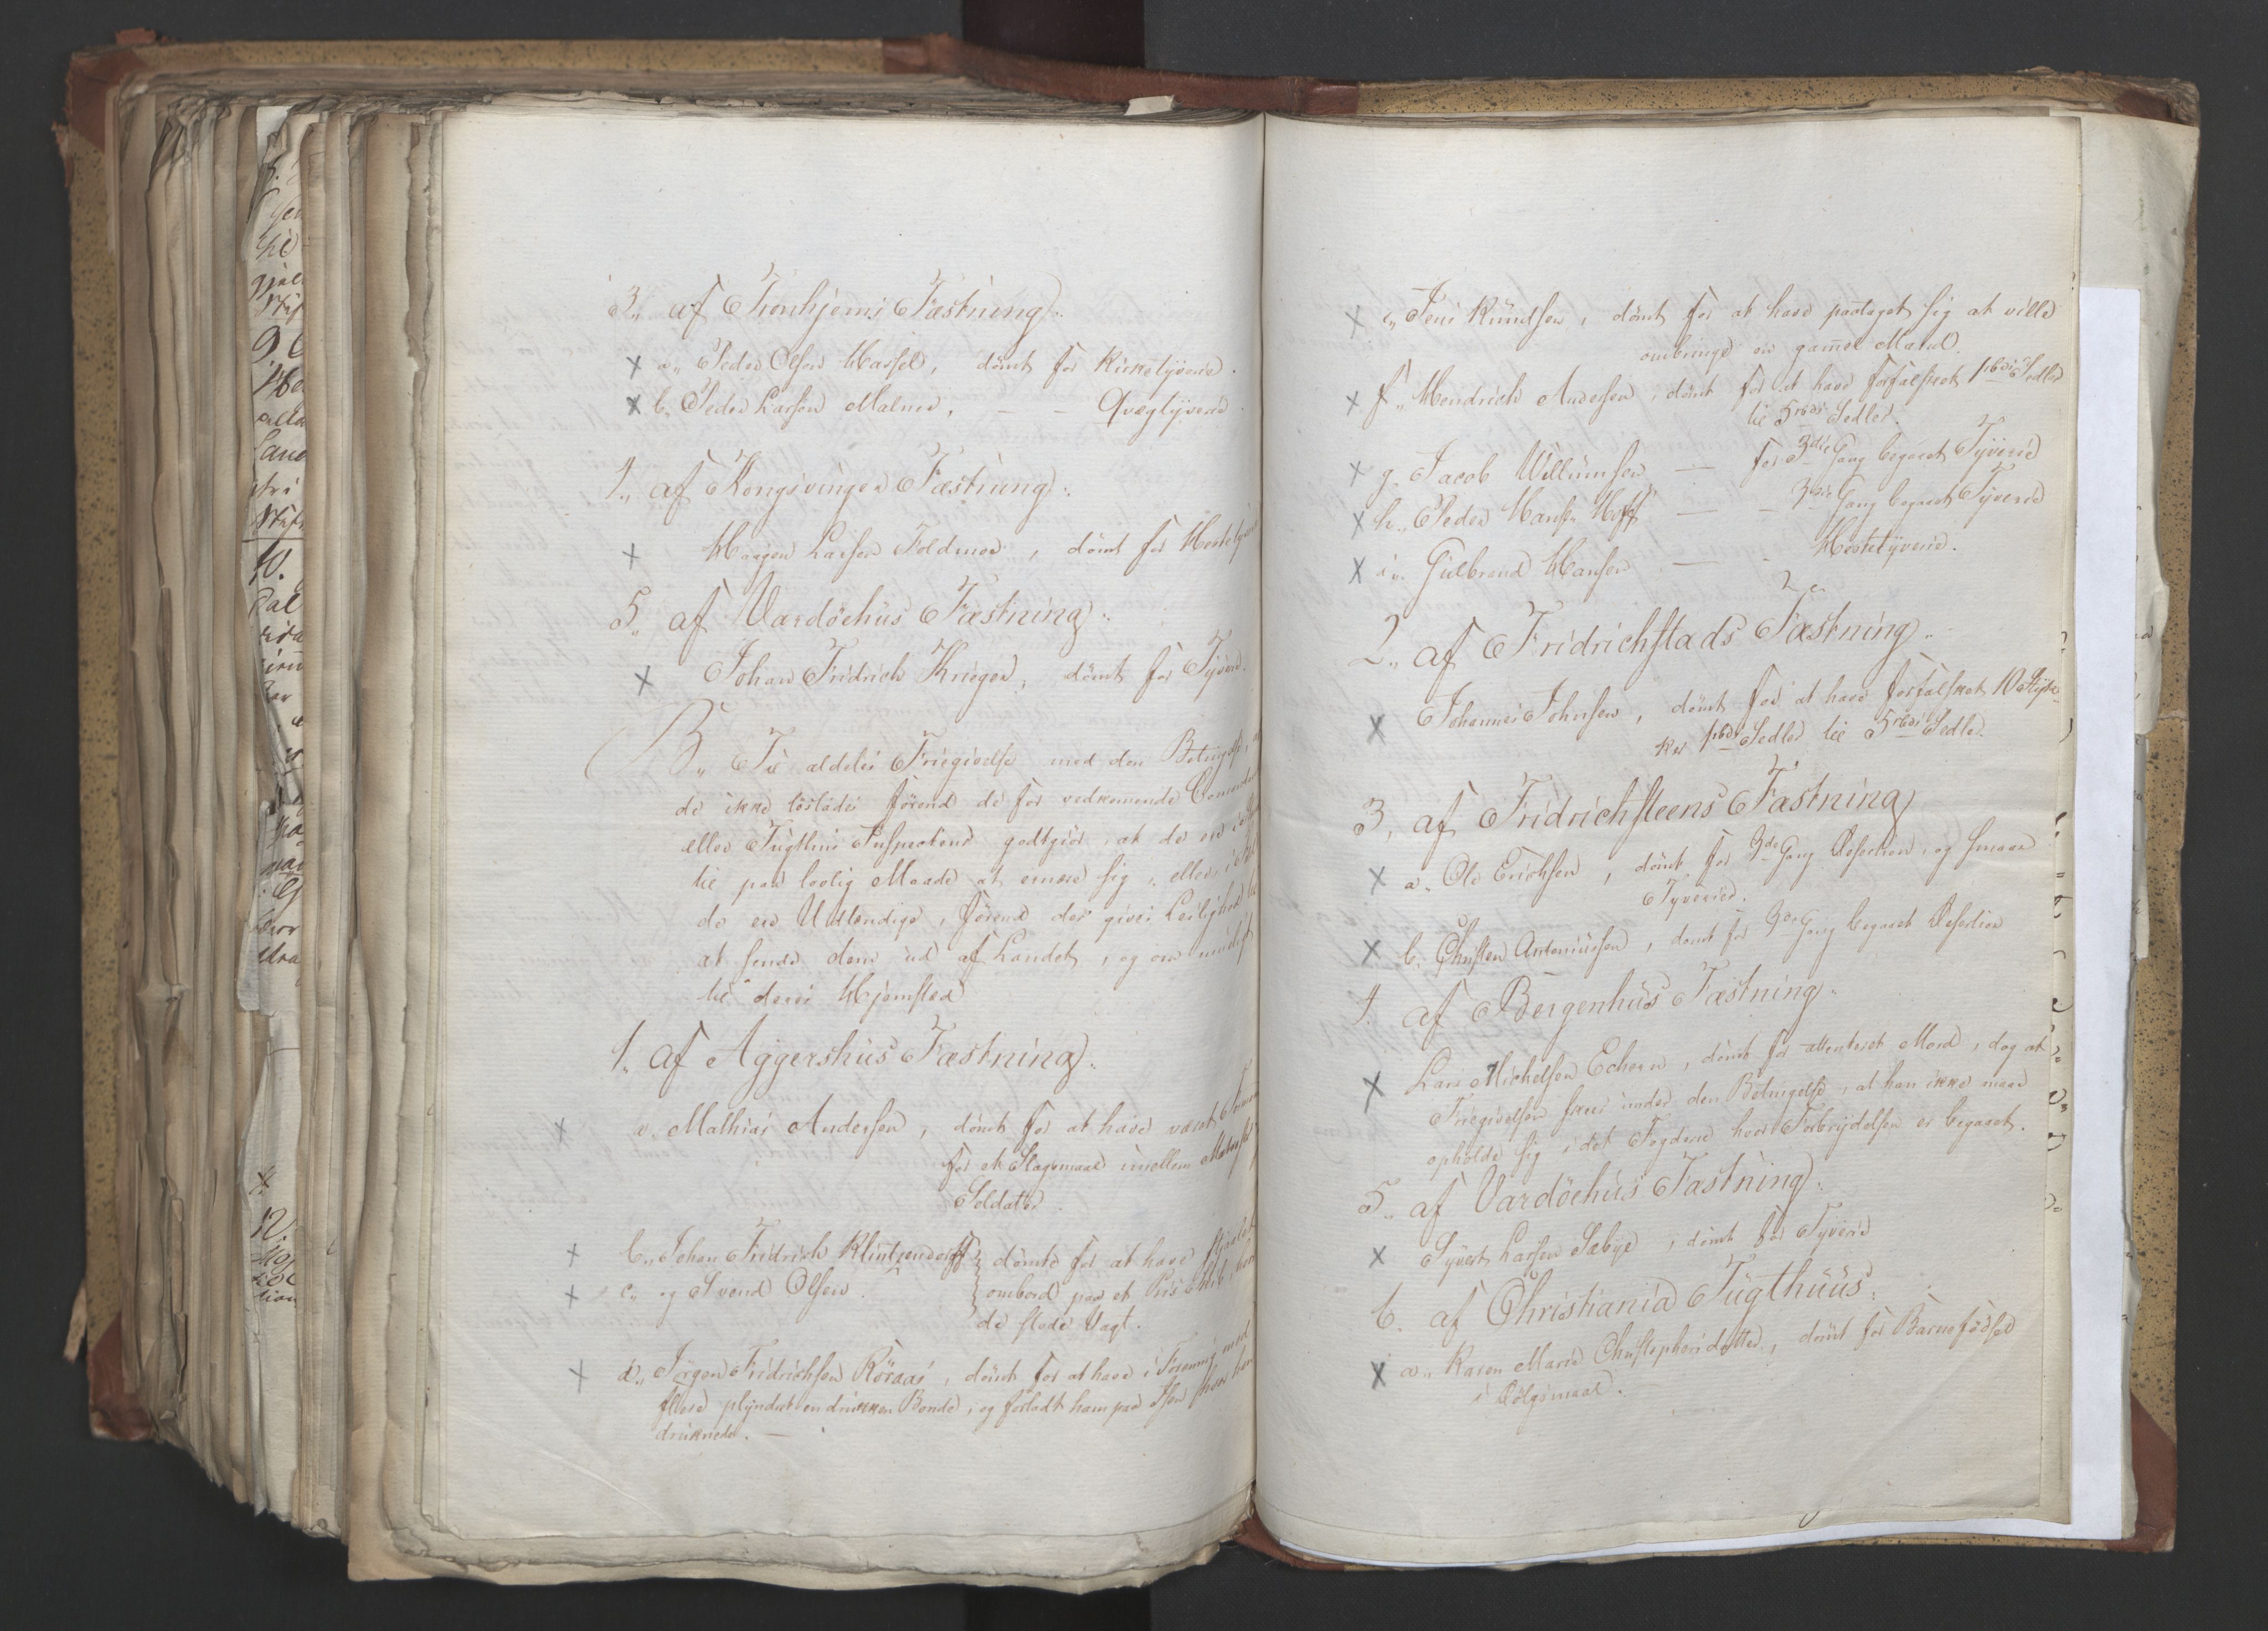 3„ af Tronhjems Fæstning:
a„ Peder Olsen Hassel, dömt for Kirketyverie.
b. Peder Larsen Malmed, — — Qvægtyverie
4„ af Kongsvinger Fæstning:
Haagen Larsen Toldmoe, dömt for Hestetyverie
5„ af Vardöehüs Fæstning:
Johan Fridrich Krieger, dömt for Tyverie.
B„ Til aldeles Friegivelse med den Betingelse,
de ikke löslades förend de for vedkomende
eller Tügthüs Inspecteur godtgiör, at de ere
til paa lovlig Maade at ernære sig, eller,
de ere Udlændige, förend der gives Leilighed
at sende dem ud af Landet, og om
til deres Hjemsted
1. af Aggershüs Fæstning:
a. Mathias Andersen, dömt for at have været
for et Slagsmaal imellem
Soldater.
b„ Johan Fridrich dömte for at have
c„ og Svend Olsen. ombord paa et Priis Skib, hvor
de stode Vagt.
d„ Jörgen Fridrichsen Röraas, dömt for at have i Forening med
flere plyndret en drukken Bonde, og forladt ham paa Isen hvor han
druknede. —
e„ Jens Knüdsen, dömt for at have paataget sig at ville
ombringe en gamel Mand.
f„ Hendrich Andersen, dömt for at have forfalsket 1 rbds Sedler
til 5 rbds Sedler.
g. Jacob Willumsen — for 3die Gang begaaet Tÿverie
h„ Peder Hansen Hoff — — 3die Gang begaaet Tÿverie
i„ Gülbrand Hansen — - Hestetÿverie.
2„ af Fridrichstads Fæstning:
Johannes Johnsen, dömt for at have forfalsket 10 Styk-
ker 1 rbds Sedler til 5 rbds Sedler.
3, af Fridrichsteens Fæstning
a„ Ole Erichsen, dömt for 3de Gang Desertion, og smaae
Tyverier.
b. Christen Antoniussen, dömt for 3de Gang begaaet Desertion
4. af Bergenhüs Fæstning:
Lars Michelsen Echern, dömt for attenteret Mord, dog at
Friegivelsen skeer under den Betingelse, at han ikke maae
opholde sig i det Fogderie hvor Forbrÿdelsen er begaaet.
5„ af Vardöehüs Fæstning:
Syvert Larsen Sæbye, dömt for Tyverie
6. af Christiania Tügthüüs:
a„ Karen Marie Christophersdatter, dömt for Barnefödsel
i Dölgsmaal.